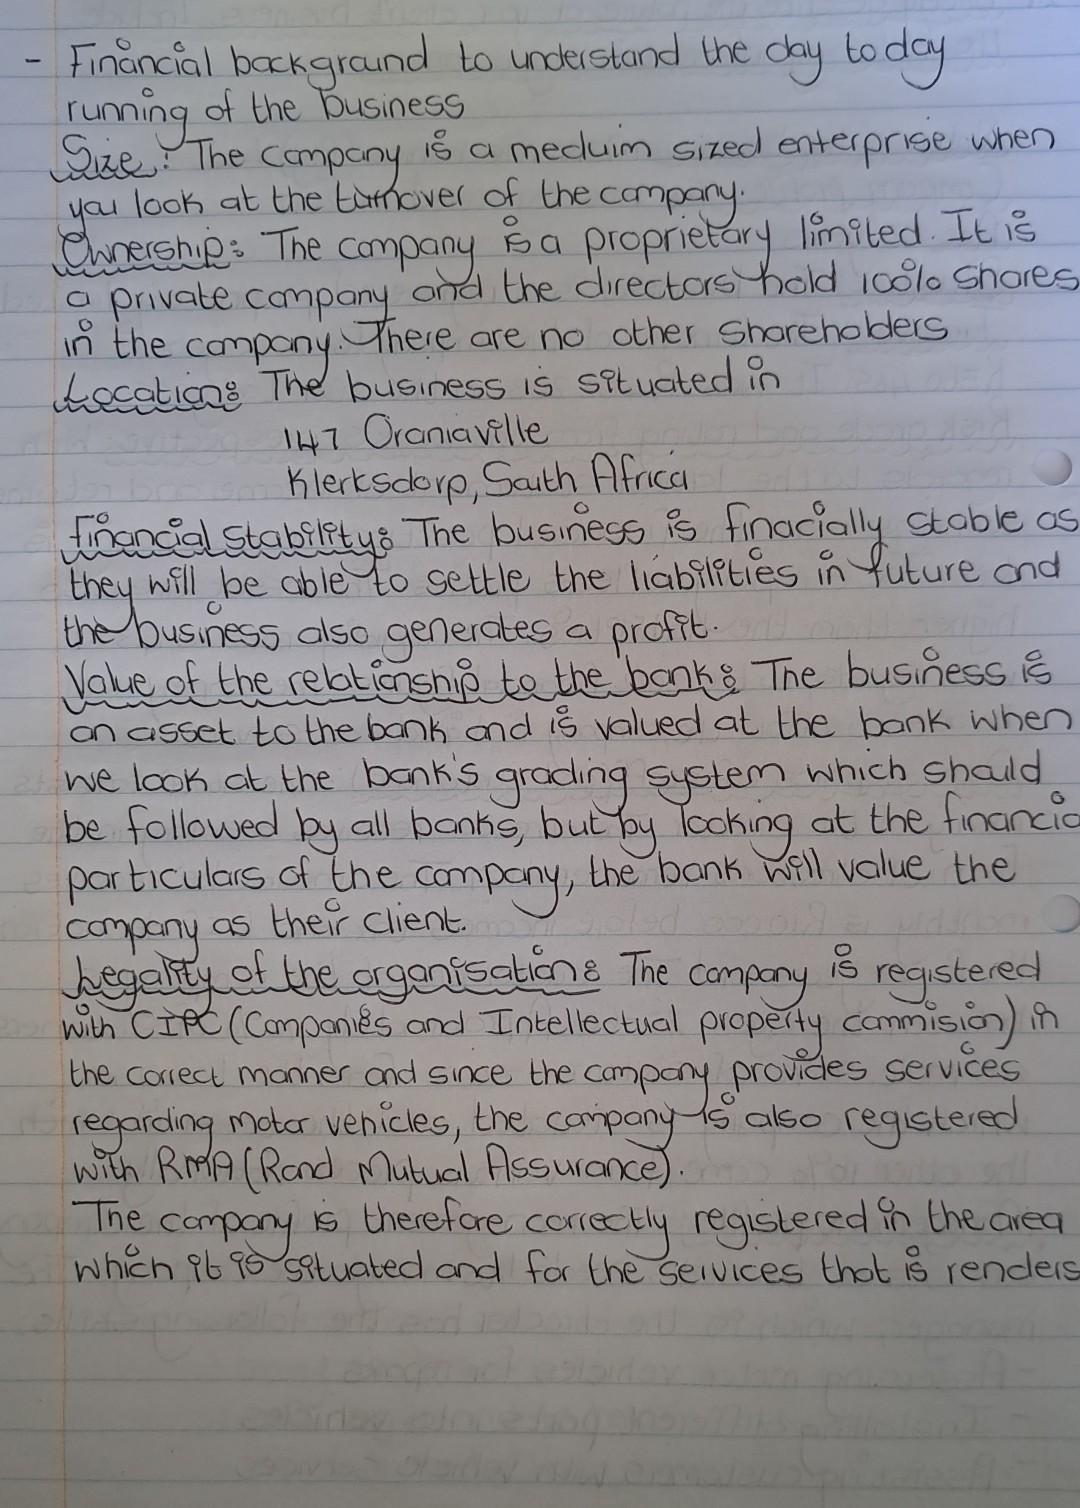 - Financial background to understand the day to day
running of the business
Size: The company is a meduim sized enterprise when
you look at the turnover of the company.
Ownership: The company is a proprietary limited. It is
a private company and the directors hold 100% shares
in the company. There are no other shareholders
Location: The business is situated in
147 Oraniaville
Klerksdorp, South Africa
Financial stability: The business is finacially stable as
they will be able to settle the liabilities in future and
the business also generates a profit.
Value of the relationship to the bank: The business is
an asset to the bank and is valued at the bank when
we look at the bank's grading system which should
be followed by all banks, but by looking at the financia
particulars of the company, the bank will value the
company as their client.
Legality of the organisation: The company is registered
with CIPC (Companies and Intellectual property commision) in
the correct manner and since the company provides services
regarding motor vehicles, the company is also registered
with RMA (Rand Mutual Assurance).
The company is therefore correctly registered in the area
which it is situated and for the services that is renders